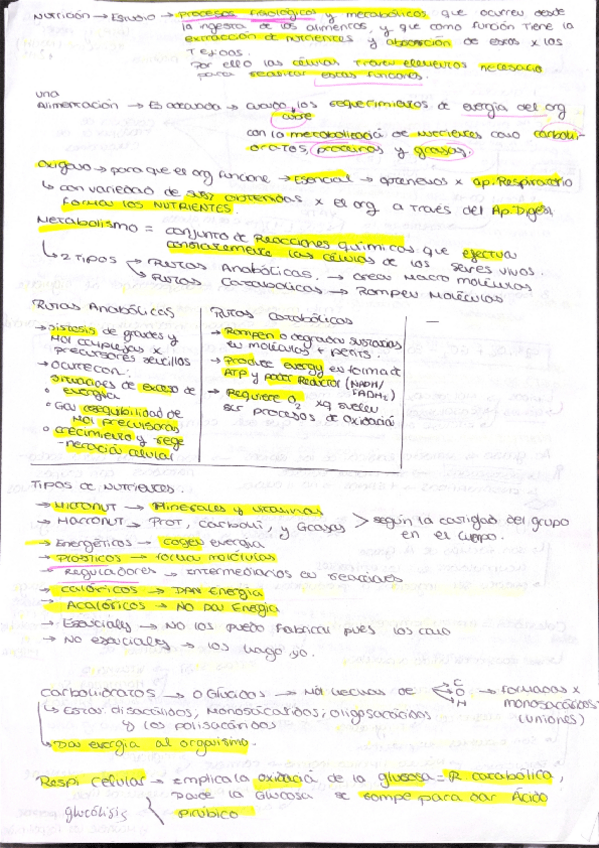 Nutrición → Estudio → Procesos fisiológicos y metabólicos, que ocurren desde
la ingesta de los alimentos, y que como función tiene la
extracción de nutrientes y absorción de estos x los
Tejidos.
Por ello las células traen elementos necesario
para realizar estas funciones.
una
Alimentación → Es adecuada → cuando los requerimientos de energía del org
cubre
con la metabolizació de nutrientes como carbohi-
dratos, proteinas y grasas.
Oxígeno → para que el org funcione → Esencial → obtenemos x ap. Respiratorio
↳ con variedad de sust contenidas x el org a través del Ap. Digest
forma los NUTRIENTES.
Metabolismo = conjunto de Reacciones químicas que efectua
constantemente las células de los seres vivos.
↳ 2 tipos → Rutas Anabólicas. → crear macro moléculas
↳ Rutas Catabólicas → Romper Moléculas
Rutas Anabólicas
→ síntesis de grandes y
mol complejas x
precursores sencillos
→ ocurre con:
situaciones de exceso de
• energía
• Gran asequibilidad de
mol precursoras
• crecimiento y rege
-neración celular
Rutas Catabólicas
→ Rompen o degradan sustancias
en moléculas + peqs.
→ Produce energy en forma de
ATP y poder Reductor (NADH/
FADH₂)
→ Requiere O₂ xq suelen
ser procesos de oxidació
Tipos de Nutrientes.
→ Micronut → Minerales y vitaminas
→ Macronut → Prot, carbohi, y Grasas > según la cantidad del grupo
en el cuerpo.
→ Energéticos → cogen energia
→ Plásticos → forman moléculas
→ Reguladores → Intermediarios en reacciones
→ calóricos → DAN Energia
→ Acalóricos → NO Dan Energia
→ Esencially → No los puedo fabricar pues los como
→ No esencialles → los hago yo.
Carbohidratos → o Glúcidos → Moléculas de C O H → formadas x
monosacáridos
(uniones)
↳ Estas disacáridos, Monosacáridos; oligosacáridos
y los polisacáridos
↳ Dan energia al organismo.
Respi celular → Implica la oxidació de la glucosa = R catabólica,
donde la Glucosa se rompe para dar Ácido
glucólisis pirúbico